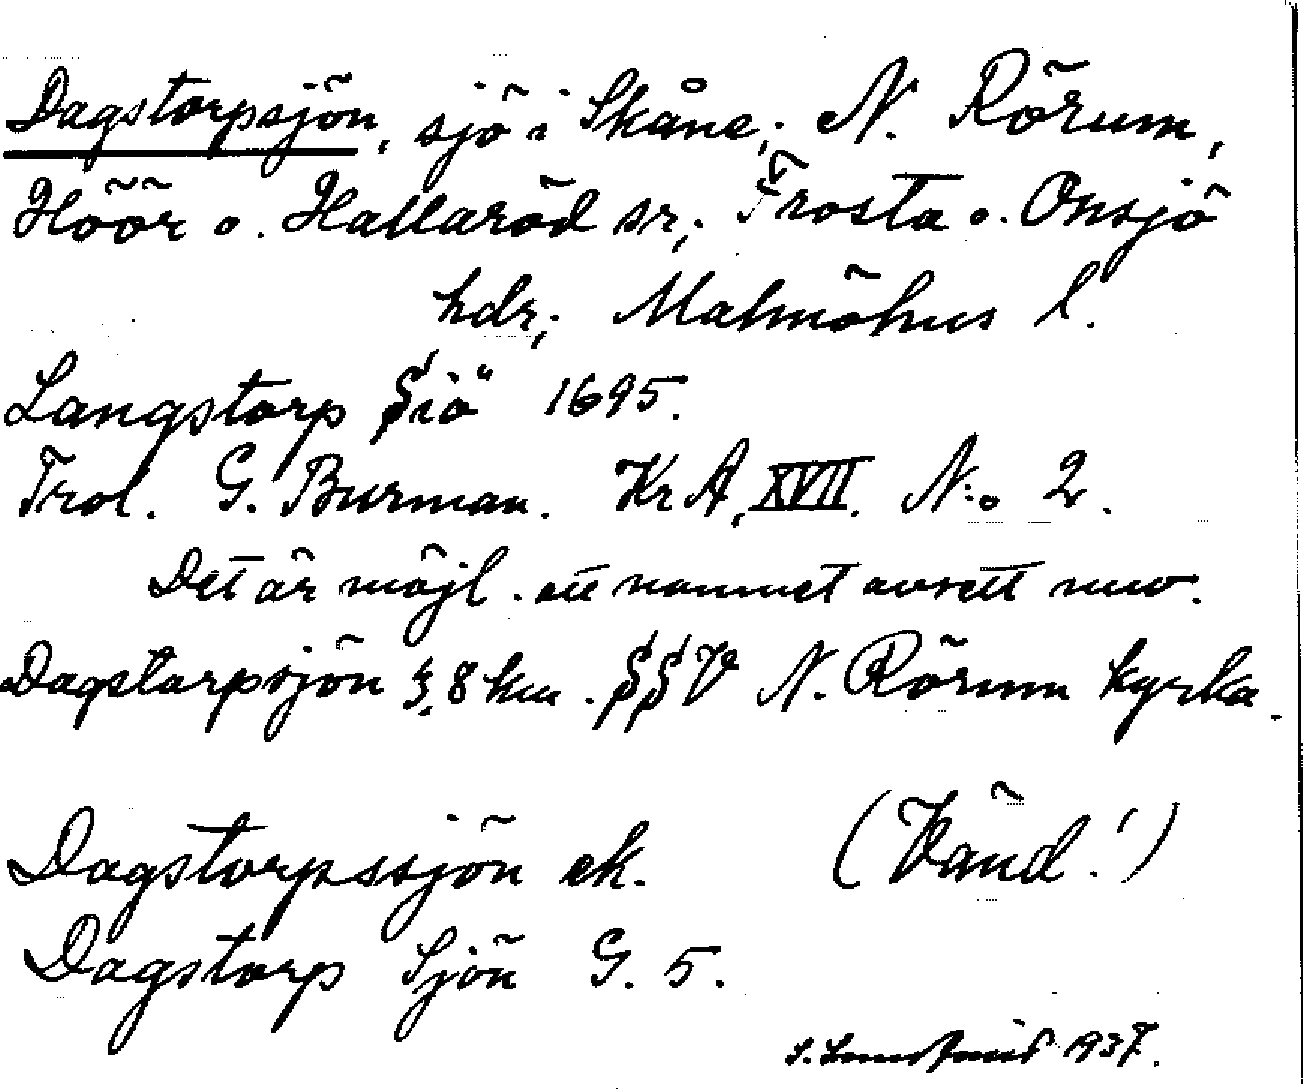 Dagstorpsjön, sjö i Skåne; N. Rörum,
Höör o. Hallaröd sr; Frosta o. Onsjö
hdr; Malmöhus l.
Langstorp Siö 1695.
Trol. G. Burman. KrA, XVII. N:o 2.
Det är möjl. att namnet avsett nuv.
Dagstorpsjön 3,8 km. SSV N. Rörum kyrka.
Dagstorpssjön ek. (Vänd!)
Dagstorp Sjön G. 5.
1937.